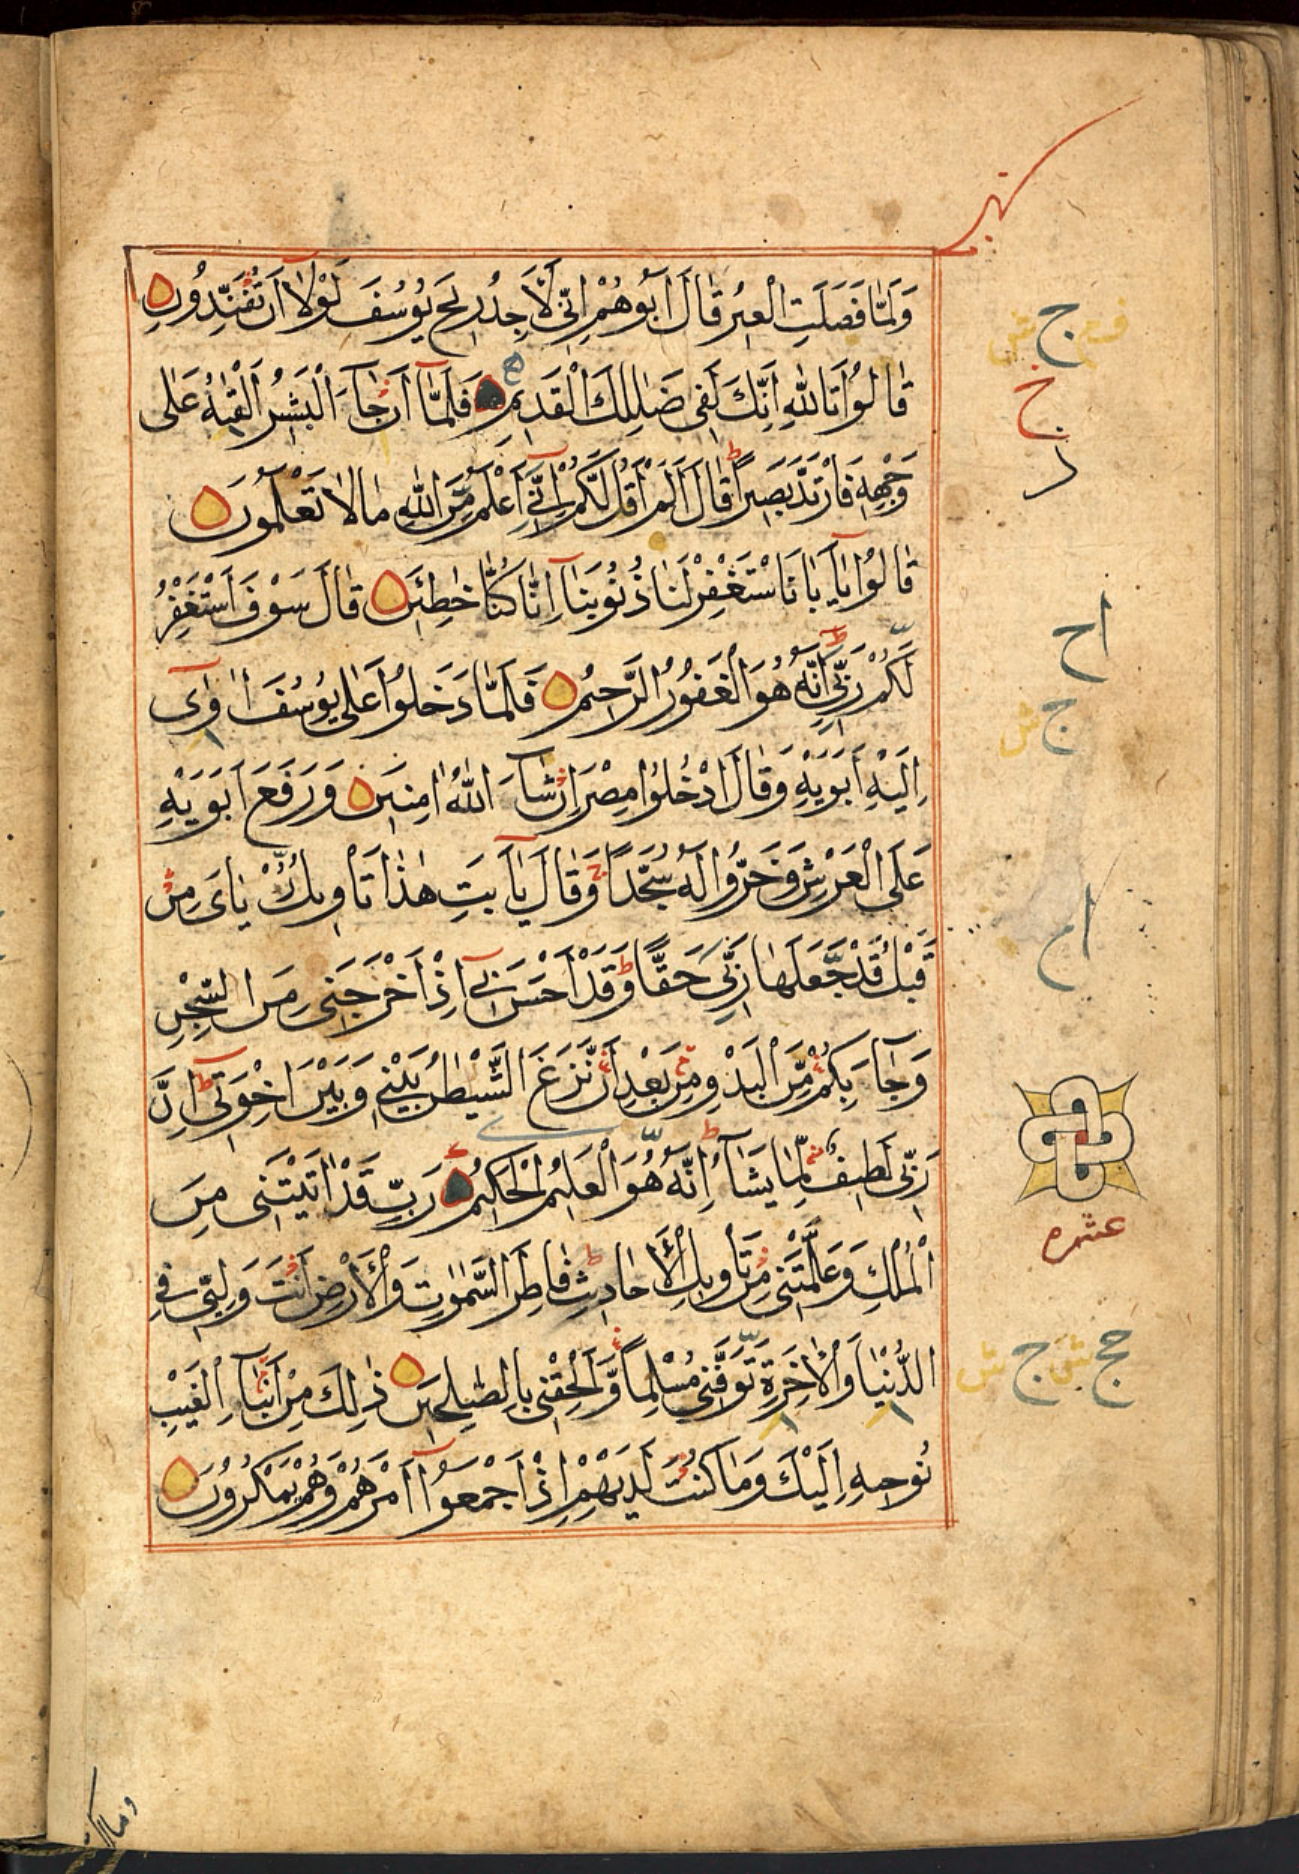 وَلَمَّا فَصَلَتِ الْعِيرُ قَالَ اَبُوهُمْ اِنِّى لَاَجِدُ رِيحَ يُوسُفَ لَوْلَآ اَنْ تُفَنِّدُونِ
قَالُوا تَاللّٰهِ اِنَّكَ لَفِى ضَلٰلِكَ الْقَدِيمِ فَلَمَّآ اَنْ جَآءَ الْبَشِيرُ اَلْقٰيهُ عَلٰى
وَجْهِهٖ فَارْتَدَّ بَصِيرًا ط قَالَ اَلَمْ اَقُلْ لَكُمْ اِنِّىٓ اَعْلَمُ مِنَ اللّٰهِ مَا لَا تَعْلَمُونَ
قَالُوا يَآ اَبَانَا اسْتَغْفِرْ لَنَا ذُنُوبَنَآ اِنَّا كُنَّا خٰطِئِينَ قَالَ سَوْفَ اَسْتَغْفِرُ
لَكُمْ رَبِّى ط اِنَّهٗ هُوَ الْغَفُورُ الرَّحِيمُ فَلَمَّا دَخَلُوا عَلٰى يُوسُفَ اٰوٰٓى
اِلَيْهِ اَبَوَيْهِ وَقَالَ ادْخُلُوا مِصْرَ اِنْ شَآءَ اللّٰهُ اٰمِنِينَ وَرَفَعَ اَبَوَيْهِ
عَلَى الْعَرْشِ وَخَرُّوا لَهٗ سُجَّدًا ج وَقَالَ يَآ اَبَتِ هٰذَا تَاْوِيلُ رُءْيَاىَ مِنْ
قَبْلُ قَدْ جَعَلَهَا رَبِّى حَقًّا ط وَقَدْ اَحْسَنَ بِىٓ اِذْ اَخْرَجَنِى مِنَ السِّجْنِ
وَجَآءَ بِكُمْ مِنَ الْبَدْوِ مِنْ بَعْدِ اَنْ نَزَغَ الشَّيْطٰنُ بَيْنِى وَبَيْنَ اِخْوَتِى ط اِنَّ
رَبِّى لَطِيفٌ لِمَا يَشَآءُ ط اِنَّهٗ هُوَ الْعَلِيمُ الْحَكِيمُ رَبِّ قَدْ اٰتَيْتَنِى مِنَ
الْمُلْكِ وَعَلَّمْتَنِى مِنْ تَاْوِيلِ الْاَحَادِيثِ ط فَاطِرَ السَّمٰوٰتِ وَالْاَرْضِ اَنْتَ وَلِيِّى فِى
الدُّنْيَا وَالْاٰخِرَةِ تَوَفَّنِى مُسْلِمًا وَاَلْحِقْنِى بِالصّٰلِحِينَ ذٰلِكَ مِنْ اَنْبَآءِ الْغَيْبِ
نُوحِيهِ اِلَيْكَ وَمَا كُنْتَ لَدَيْهِمْ اِذْ اَجْمَعُوٓا اَمْرَهُمْ وَهُمْ يَمْكُرُونَ
ج
ج
اح
ج
عشره